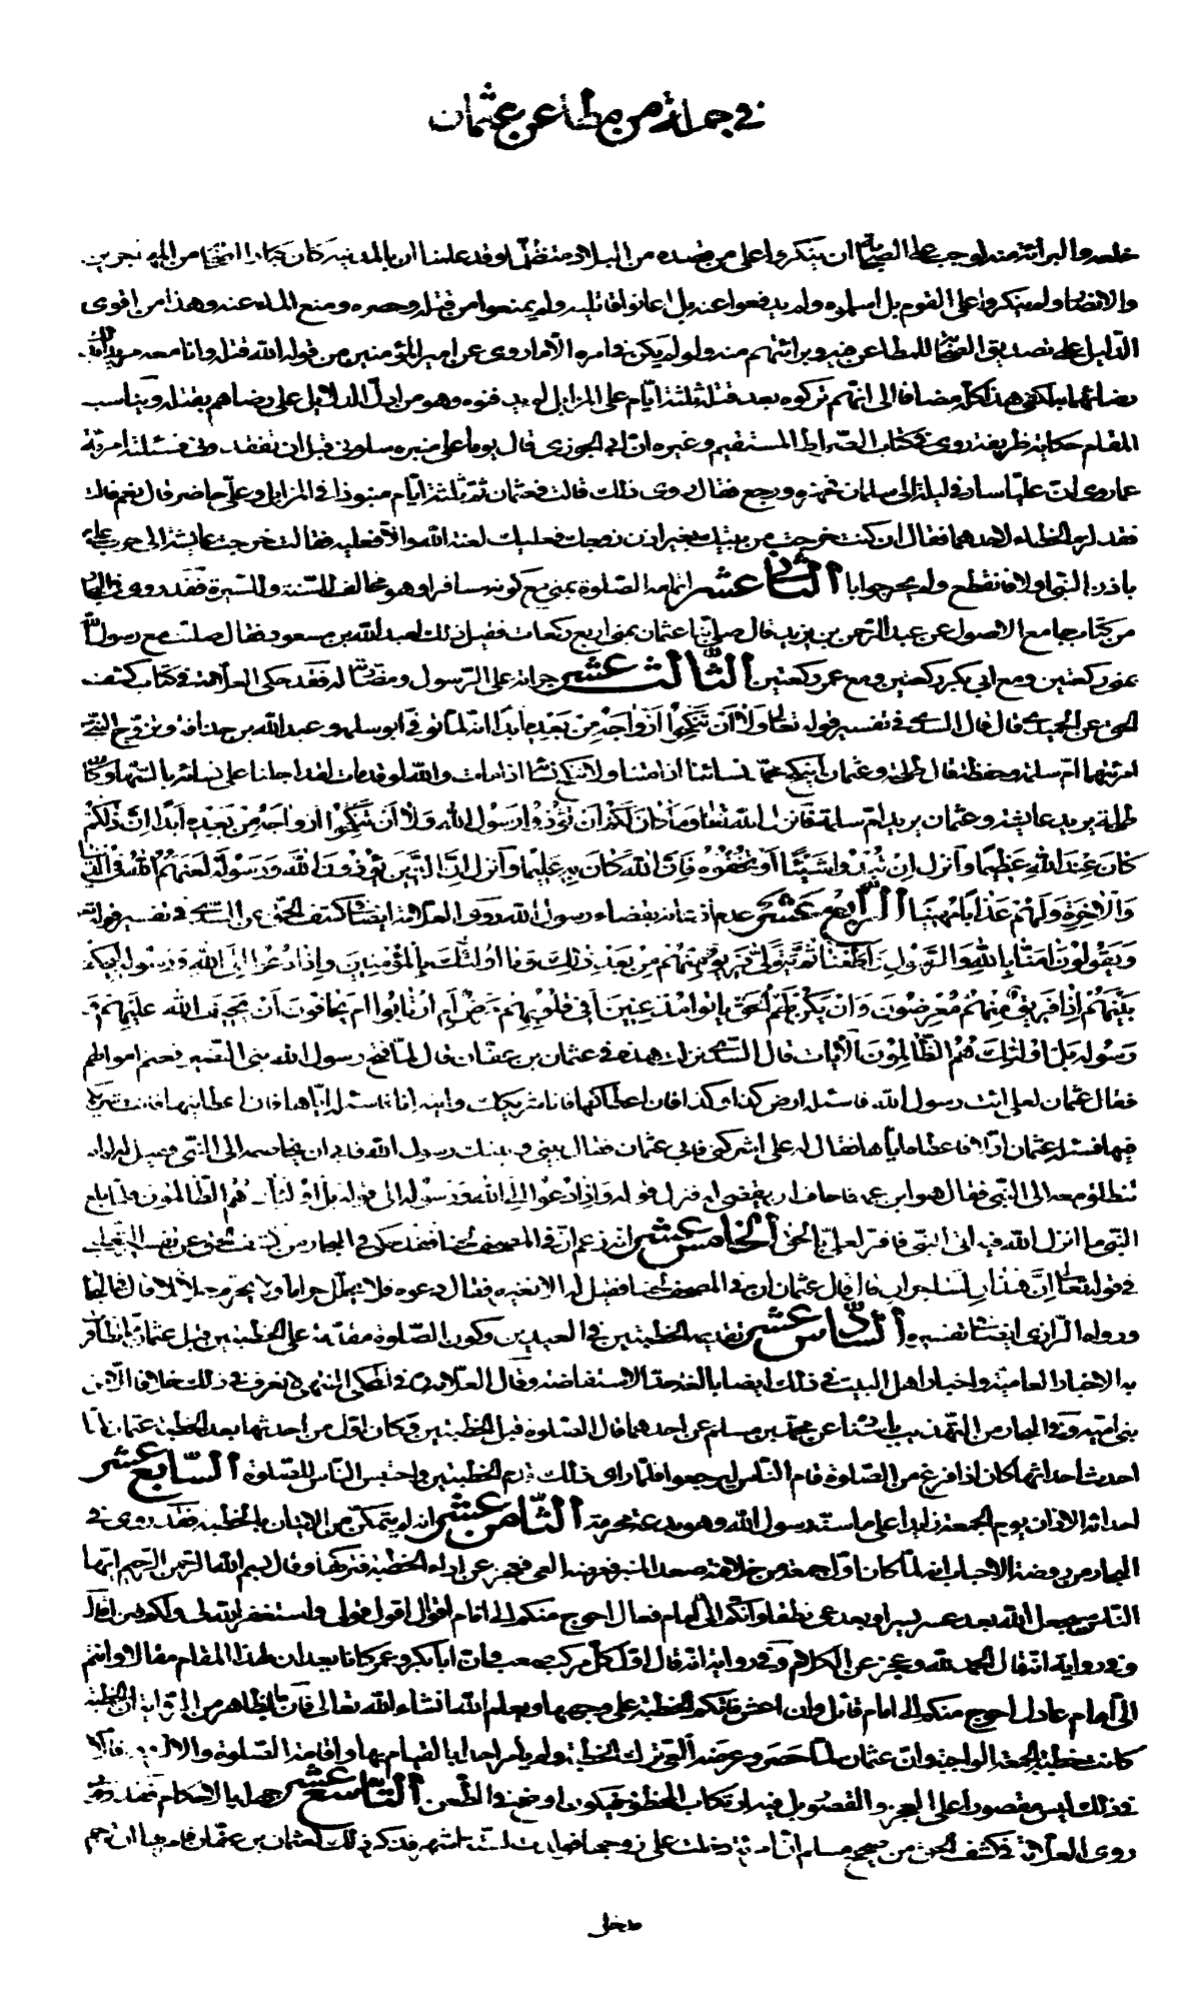 في جملة من مطاعن عثمان
خلعه والبراءة منه لوجب على الصحابة ان ينكروا على من قصده من البلاد متظلما وقد علمنا ان بالمدينة كان كبار الصحابة من المهاجرين
والانصار ولم ينكروا على القوم بل اسلموه ولم يدفعوا عنه بل اعانوا قاتليه ولم يمنعوا من قتله وحصره ومنع الماء عنه وهذا من اقوى
الدليل على تصديق الصحابة للمطاعن فيه وبرائتهم منه ولو لم يكن في امره الا ما روى عن امير المؤمنين من قوله الله قتله وانا معه
لكفى هذا كله مضافا الى انهم تركوه بعد قتله ثلثة ايام على المزابل لم يدفنوه وهو من ادل الدلايل على رضاهم بقتله ويناسب
المقام حكاية ظريفة روى في كتاب الصراط المستقيم وغيره ان ابن الجوزي قال يوما على منبره سلوني قبل ان تفقدوني فسئلته امرئة
عما روى ان عليا سار في ليلة الى سلمان فجهزه ورجع فقال روى ذلك قالت فعثمان ثم ثلثة ايام منبوذا في المزابل وعلي حاضر قال نعم قالت
فقد لزم الخطاء لاحدهما فقال ان كنت خرجت من بيتك بغير اذن زوجك فعليك لعنة الله والا فعليه فقالت خرجت عايشة الى حرب علي
باذن النبي او لا فانقطع ولم يحر جوابا الثاني عشر اتمامه الصلوة بمنى مع كونه مسافرا وهو مخالف للسنة والسيرة فقد روى في البحار
من كتاب جامع الاصول عن عبد الرحمن بن يزيد قال صلى بنا عثمان بمنى اربع ركعات فقيل ذلك لعبد الله بن مسعود فقال صليت مع رسول الله
بمنى ركعتين ومع ابي بكر ركعتين ومع عمر ركعتين الثالث عشر جرائته على الرسول ومضادته له فقد حكى العلامة في كتاب كشف
الحق عن الحميدي قال قال السدي في تفسير قوله تعالى ولا ان تنكحوا ازواجه من بعده ابدا انه لما توفي ابو سلمة وعبد الله بن حذافة وتزوج النبي
امرئتيهما ام سلمة وحفصة قال طلحة وعثمان اينكح محمد نسائنا اذا متنا ولا ننكح نسائه اذا مات والله لو قد مات لقد اجلنا على نسائه بالسهام وكان
طلحة يريد عايشة وعثمان يريد ام سلمة فانزل الله تعالى وما كان لكم ان تؤذوا رسول الله ولا ان تنكحوا ازواجه من بعده ابدا ان ذلكم
كان عند الله عظيما وانزل ان تبدوا شيئا او تخفوه فان الله كان به عليما وانزل ان الذين يؤذون الله ورسوله لعنهم الله في الدنيا
والاخرة ولهم عذابا مهينا الرابع عشر عدم اذعانه بقضاء رسول الله روى العلامة ايضا في كشف الحق عن السدي في تفسير قوله
ويقولون امنا بالله وبالرسول واطعنا ثم يتولى فريق منهم من بعد ذلك وما اولئك بالمؤمنين واذا دعوا الى الله ورسوله ليحكم
بينهم اذا فريق منهم معرضون وان يكن لهم الحق ياتوا اليه مذعنين افي قلوبهم مرض ام ارتابوا ام يخافون ان يحيف الله عليهم و
رسوله بل اولئك هم الظالمون الايات قال السدي نزلت هذه في عثمان بن عفان قال لما فتح رسول الله بني النضير فغنم اموالهم
فقال عثمان لعلي ائت رسول الله فاسئله ارض كذا وكذا فان اعطاكها فانا شريكك فيها واتيه انا فاسئله اياها فان اعطانيها فانت شريكي
فيها فسئله عثمان اولا فاعطاه اياها فقال له علي اشركني فابى عثمان فقال بيني وبينك رسول الله فابى ان يخاصمه الى النبي فقيل له لم لا
تنطلق معه الى النبي فقال هو ابن عمه فاخاف ان يقضي له فنزل قوله واذا دعوا الى الله ورسوله الى قوله بل اولئك هم الظالمون فلما بلغ
النبي ما انزل الله فيه اتى النبي فاقر لعلي بالحق الخامس عشر انه زعم ان في المصحف لحنا فقد حكى في البحار من كشف الحق عن تفسير الثعلبي
في قوله تعالى ان هذان لساحران قال قال عثمان ان في المصحف لحنا فقيل له الا تغيره فقال دعوه فلا يحلل حراما ولا يحرم حلالا قال في البحار
ورواه الرازي ايضا في تفسيره السادس عشر تقديمه الخطبتين في العيدين وكون الصلوة مقدمة على الخطبتين قبل عثمان مما تظافر
به الاخبار العامية واخبار اهل البيت في ذلك ايضا بالغة حد الاستفاضة وقال العلامة في محكى المنتهى لا نعرف في ذلك خلافا الا من
بني امية وفي البحار من التهذيب باسناده عن محمد بن مسلم عن احدهما قال الصلوة قبل الخطبتين وكان اول من احدثها بعد الخطبة عثمان لما
احدث احداثه كان اذا فرغ من الصلوة قام الناس ليرجعوا فلما راى ذلك قدم الخطبتين واحتبس الناس للصلوة السابع عشر
احداثه الاذان يوم الجمعة زايدا على ما سنه رسول الله وهو بدعة محرمة الثامن عشر انه لم يتمكن من الاتيان بالخطبة فقد روى في
البحار من روضة الاحباب انه لما كان اول جمعة من خلافته صعد المنبر فعرضه العي فعجز عن اداء الخطبة فتركها وقال بسم الله الرحمن الرحيم ايها
الناس سيجعل الله بعد عسر يسرا وبعد عي نطقا وانكم الى امام فعال احوج منكم الى امام قوال اقول قولي واستغفر الله لي ولكم فنزل قال
وفي رواية انه قال الحمد لله وعجز عن الكلام وفي رواية انه قال اول كل مركب صعب وان ابا بكر وعمر كانا يعدان لهذا المقام مقالا وانتم
الى امام عادل احوج منكم الى امام قائل وان اعش فاتكم الخطبة على وجهها ويعلم الله انشاء الله تعالى قال الظاهر من الرواية ان الخطبة
كانت خطبة الجمعة الواجبة وان عثمان لما حصر وعرضه العي ترك الخطبة ولم يامر احدا بالقيام بها واقامة الصلوة والا
في ذلك ليس مقصورا على العجز والقصور بل فيه ارتكاب المحظور فيكون اوضح في الطعن التاسع عشر جهله بالاحكام فقد
روى العلامة في كشف الحق من صحيح مسلم ان امرئة دخلت على زوجها فولدت لستة اشهر فذكر ذلك لعثمان بن عفان فامر بها ان ترجم
فدخل